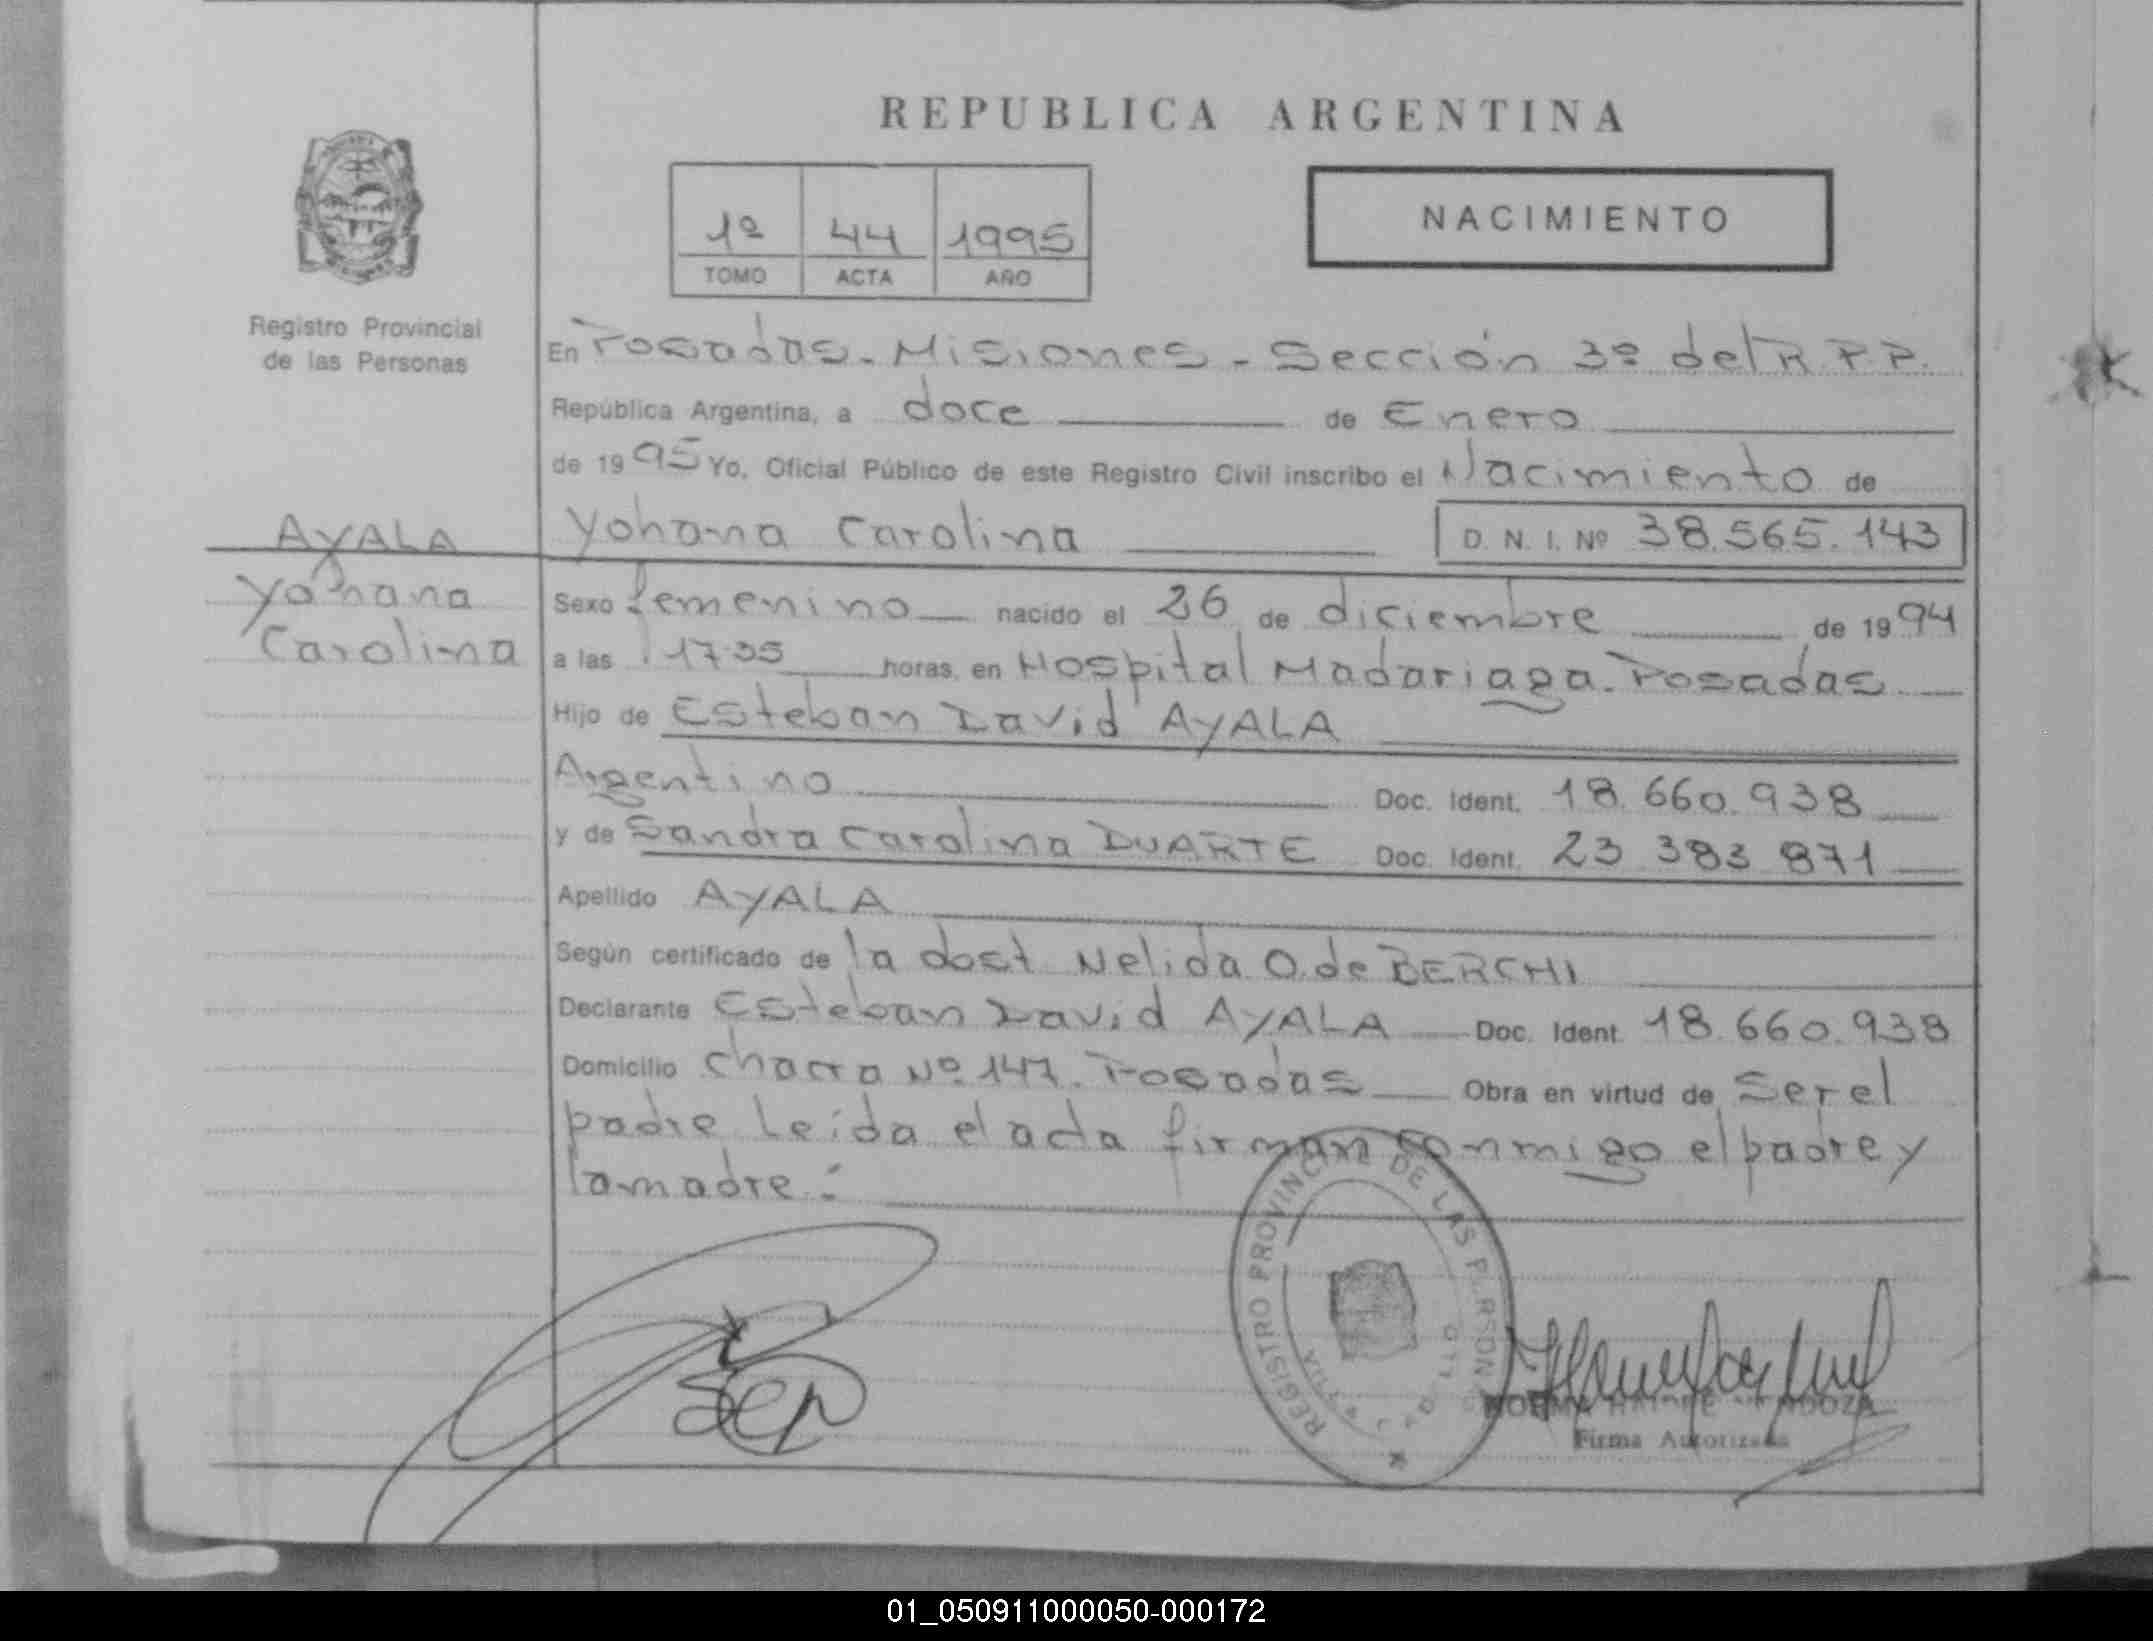 REPUBLICA ARGENTINA
1º 44 1995
TOMO ACTA AÑO
NACIMIENTO
Registro Provincial
de las Personas
En Posadas - Misiones - Sección 3º del R.P.P.
República Argentina, a doce de Enero
de 1995 Yo, Oficial Público de este Registro Civil inscribo el Nacimiento de
Yohana Carolina D. N. I. Nº 38.565.143
AYALA
Yohana
Carolina
Sexo femenino nacido el 26 de diciembre de 1994
a las 17:35 horas, en Hospital Madariaga. Posadas
Hijo de Esteban David AYALA
Argentino Doc. Ident. 18.660.938
y de Sandra Carolina DUARTE Doc. Ident. 23 383 871
Apellido AYALA
Según certificado de la doct Nelida O. de BERCHI
Declarante Esteban David AYALA Doc. Ident. 18.660.938
Domicilio chacra Nº 147. Posadas Obra en virtud de ser el
padre Leida el acta firman conmigo el padre y
la madre:
REGISTRO PROVINCIAL DE LAS PERSONAS
Firma Autorizada
01_050911000050-000172